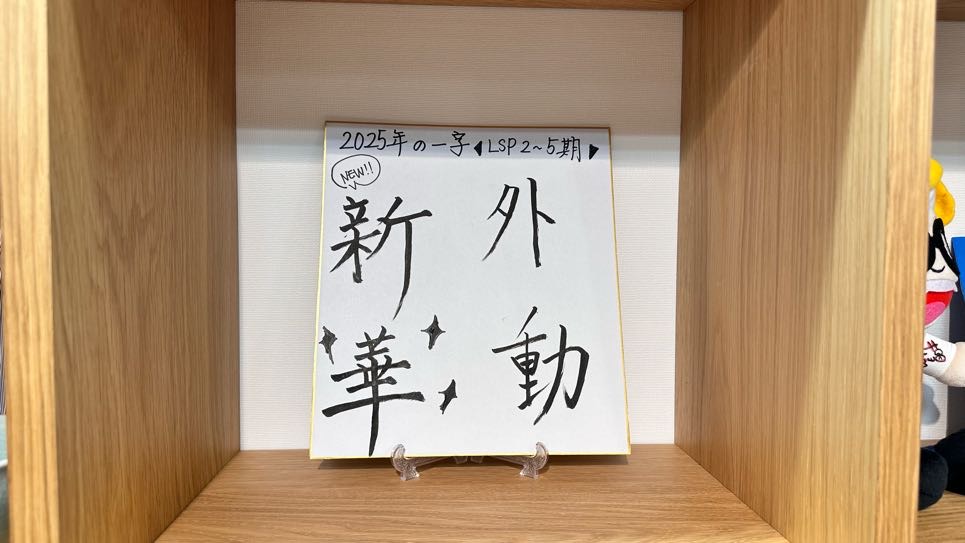 2025年の一字 LSP2~5期
NEW!!
新 外
華 動